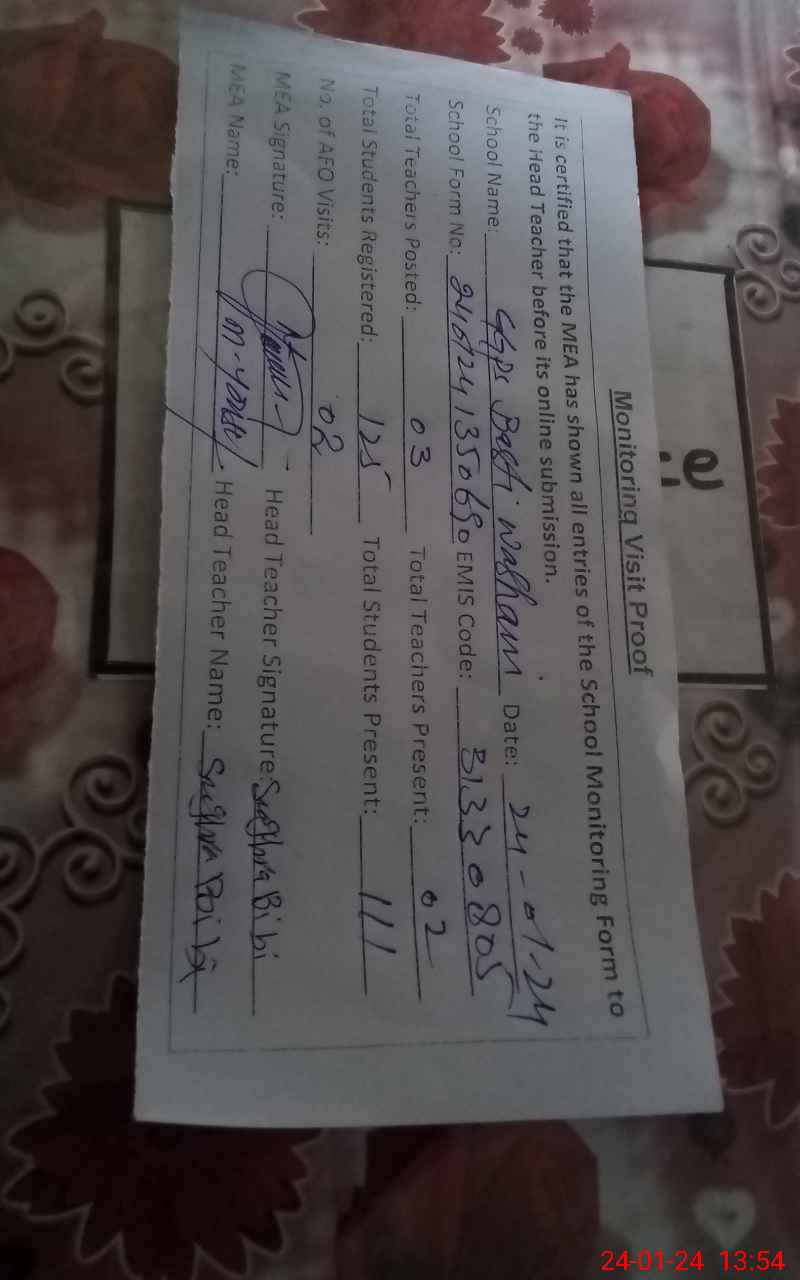 Monitoring Visit Proof
It is certified that the MEA has shown all entries of the School Monitoring Form to
the Head Teacher before its online submission.
School Name: GGPS Basti washani Date: 24-01-24
School Form No: EMIS Code: 31330805
Total Teachers Posted: 03 Total Teachers Present: 02
Total Students Registered: 125 Total Students Present: 111
No. of AEO Visits: 02
MEA Signature: Head Teacher Signature: Sughra Bibi
MEA Name: Head Teacher Name: Sughra Bibi
24-01-24 13:54